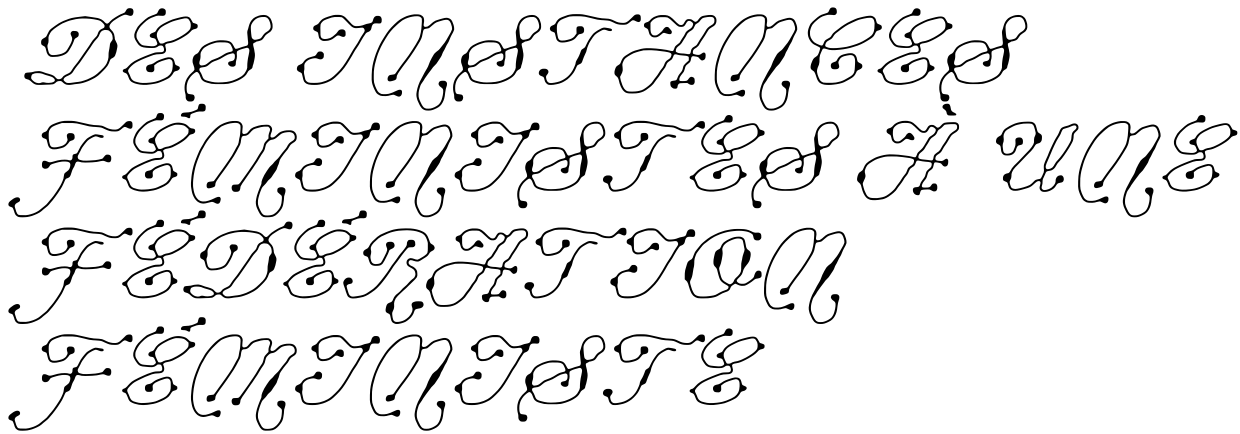 DES INSTANCES
FÉMINISTES À UNE
FÉDÉRATION
FÉMINISTE